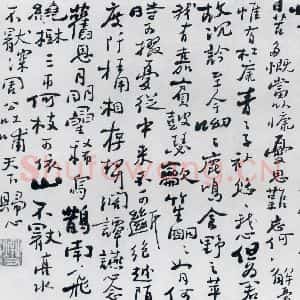 日苦多慨當以慷憂思難忘何解憂
惟有杜康青青子衿悠悠我心但爲君
故沉吟至今呦呦鹿鳴食野之苹
我有嘉賓鼓瑟吹笙明明如月何
時可掇憂從中來不可斷絕越陌
度阡枉用相存契闊談讌心念
舊恩月明星稀烏鵲南飛
繞樹三匝何枝可依山不厭高水
不厭深周公吐哺天下歸心